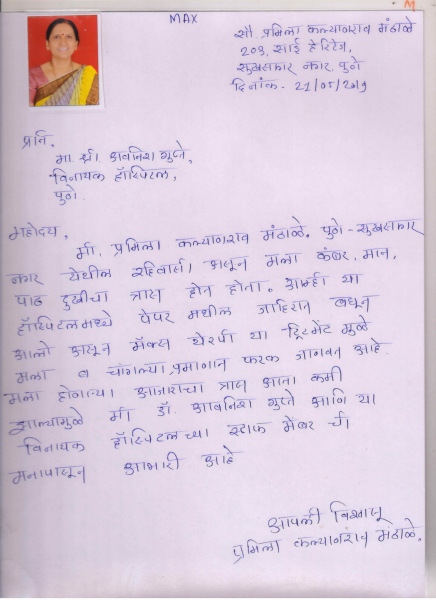 MAX
M
सौ. प्रमिला कल्याणराव मंढाळे
203, साई हेरिटेज,
सुखसागर नगर, पुणे
दिनांक - 21/05/2019
प्रति,
मा. श्री. अवनिश गुप्ते,
विनायक हॉस्पिटल,
पुणे.
महोदय,
मी, प्रमिला कल्याणराव मंढाळे. पुणे - सुखसागर
नगर येथील रहिवासी असून मला कंबर, मान,
पाठ दुखीचा त्रास होत होता. आम्ही या
हॉस्पिटलमध्ये पेपर मधील जाहिरात बघून
आलो असून मॅक्स थेरपी या ट्रिटमेंट मुळे
मला व चांगल्या प्रमाणात फरक जाणवत आहे.
मला होणाऱ्या आजाराचा त्रास आता कमी
झाल्यामुळे मी डॉ. अवनिश गुप्ते आणि या
विनायक हॉस्पिटलच्या स्टाफ मेंबर ची
मनापासून आभारी आहे
आपली विश्वासू
प्रमिला कल्याणराव मंढाळे.